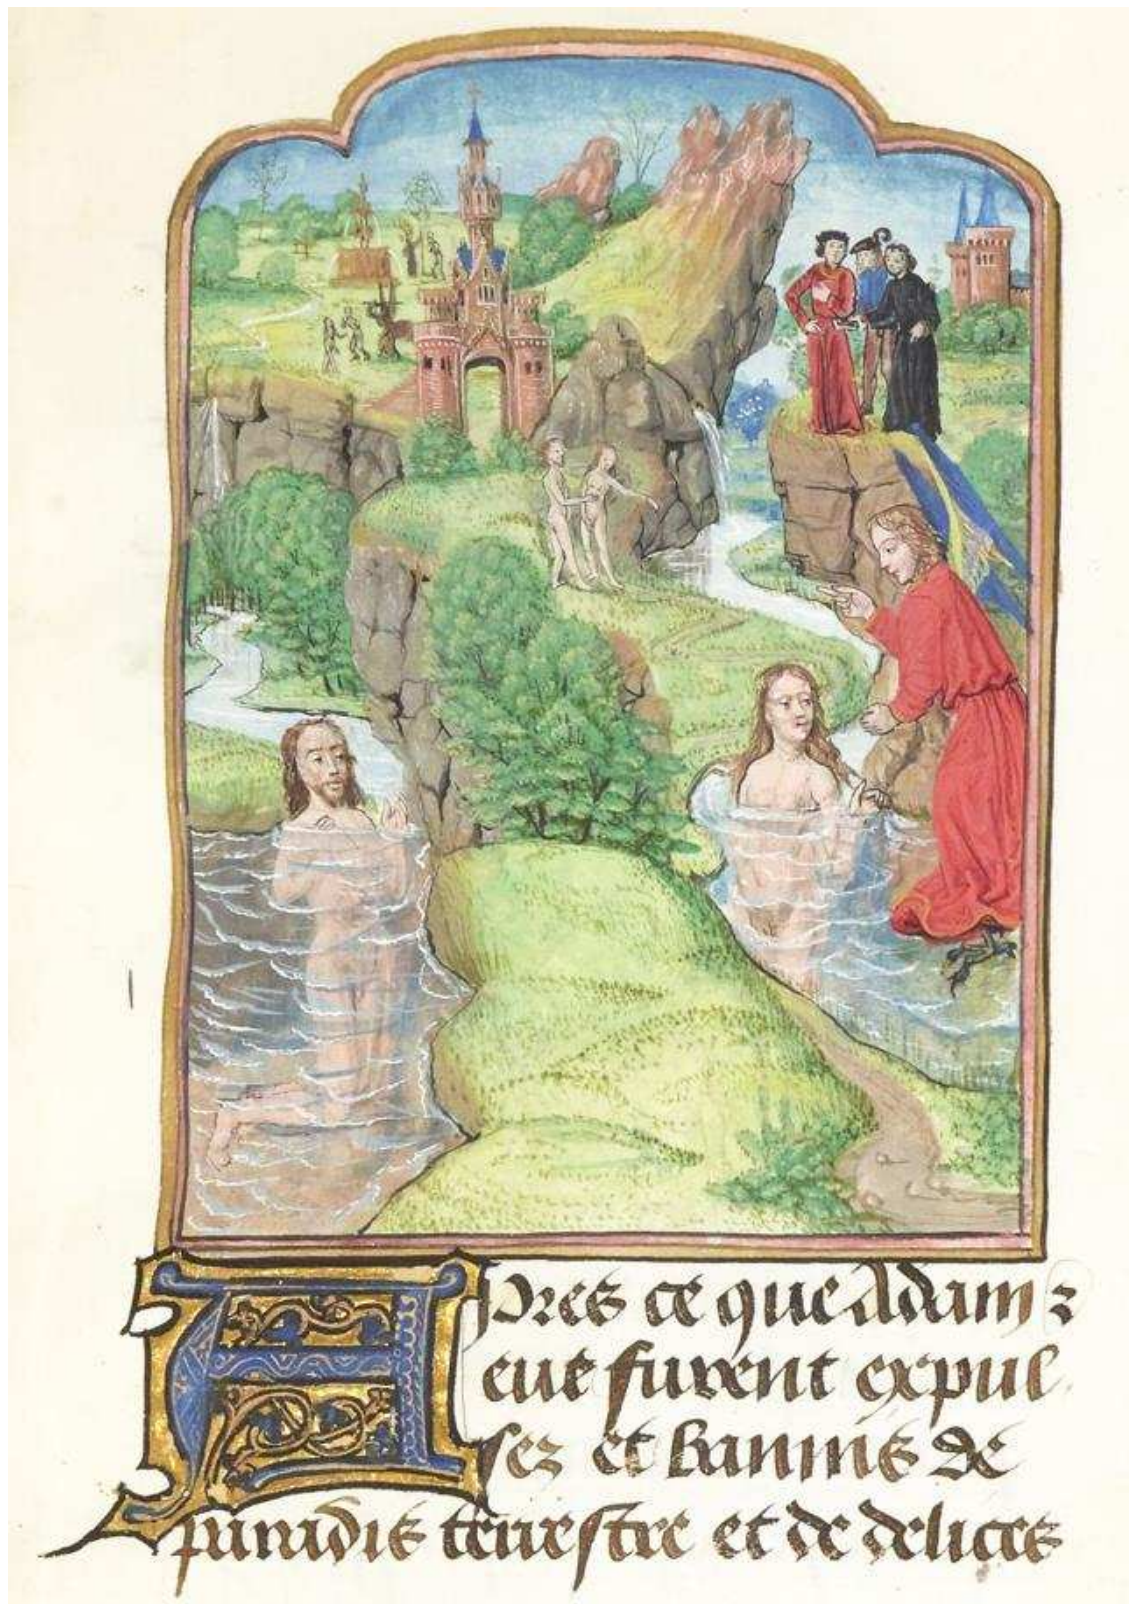 Apres ce que Adam ⁊
eue furent expul
sez et bannis de
paradis terrestre et de delices